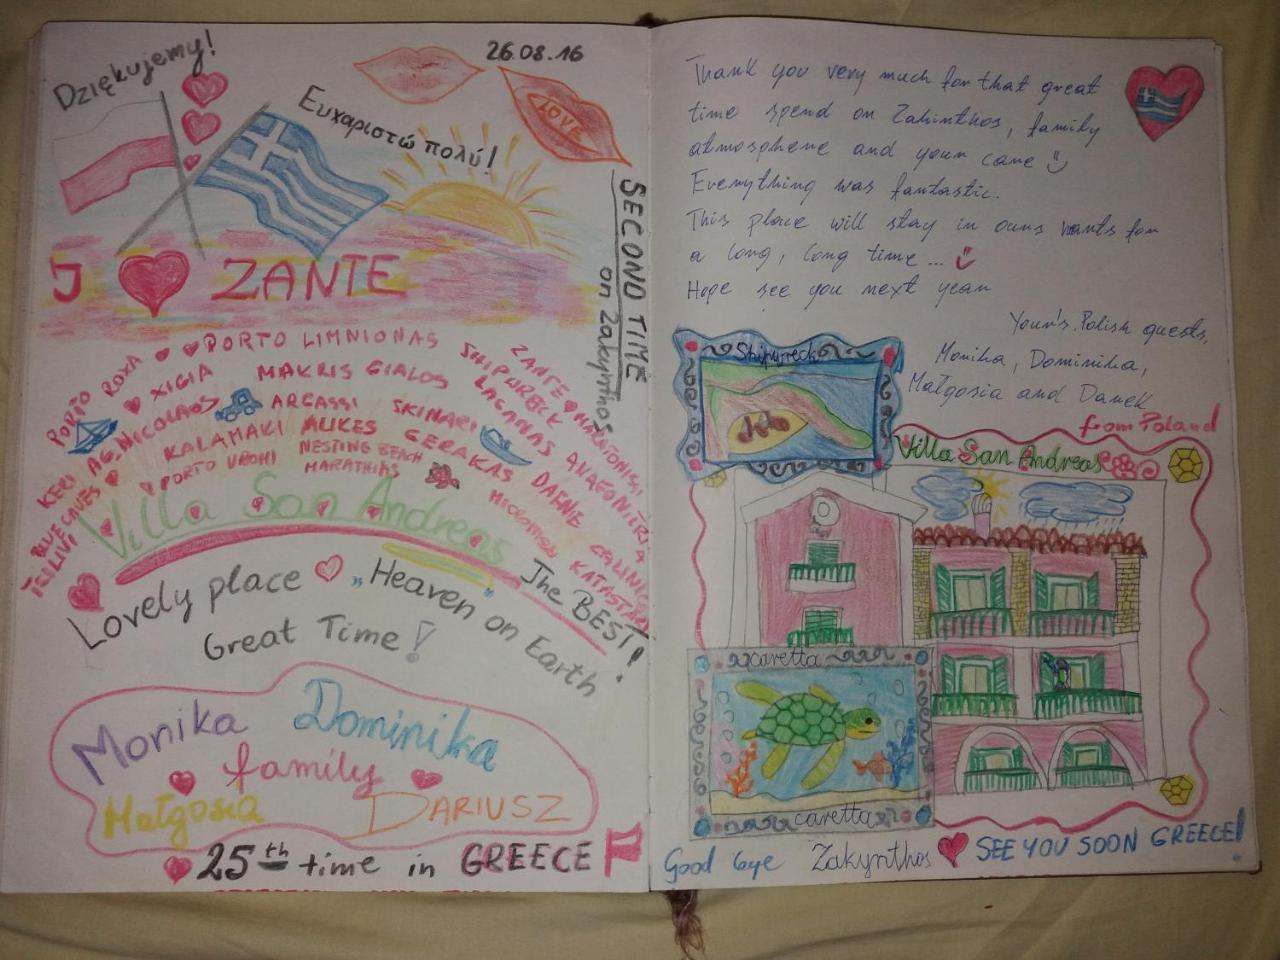 Dziękujemy!
26.08.16
Ευχαριστώ πολύ!
LOVE
SECOND TIME
on Zakynthos
I ZANTE
PORTO LIMNIONAS
PORTO ROXA
XIGIA
MAKRIS GIALOS
SHIPWRECK
ZANTE MARATONISSI
KERI
AG. NICOLAOS
ARGASSI
SKINARI
LAGANAS
KALAMAKI
ALIKES
GERAKAS
NESTING BEACH
PORTO VROMI
MARATHIAS
DAFNE
BLUE CAVES
TSILIVI
KATASTARI
Villa San Andreas
Lovely place „Heaven on Earth"!
The BEST!
Great Time!
Monika Dominika
family
Małgosia DARIUSZ
25th time in GREECE
Thank you very much for that great
time spend on Zakinthos, family
atmosphere and your care
Everything was fantastic.
This place will stay in ours hearts for
a long, long time...
Hope see you next year
Your's Polish guests,
Monika, Dominika,
Małgosia and Darek
from Poland
Shipwreck
Villa San Andreas
caretta
caretta
Good bye Zakynthos SEE YOU SOON GREECE!